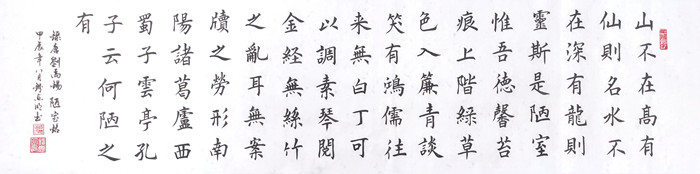 山不在高有
仙則名水不
在深有龍則
靈斯是陋室
惟吾德馨苔
痕上階綠草
色入簾青談
笑有鴻儒往
来無白丁可
以調素琴閱
金経無絲竹
之亂耳無案
牘之勞形南
陽諸葛廬西
蜀子雲亭孔
子云何陋之
有
錄唐劉禹錫陋室銘
甲辰年